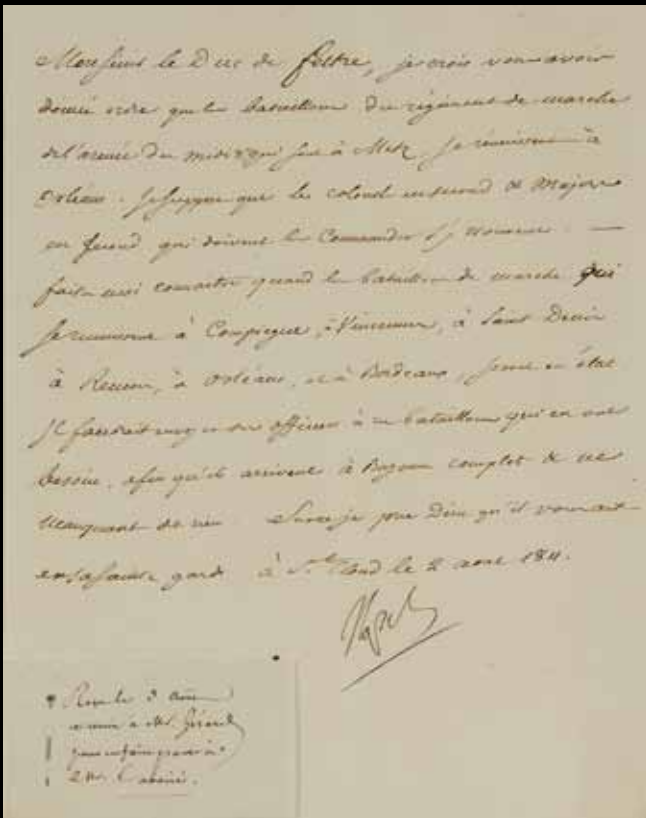 Monsieur le Duc de feltre, je crois vous avoir
donné ordre que les bataillons du régiment de marche
de l'armée du midi qui sont à Metz, se réunissent à
Orléans. Je suppose que les colonel en second et Majors
en second qui doivent les Commander s'y trouvent. —
faites moi connaitre quand les bataillons de marche qui
se réunissent à Compiegne, à Vincennes, à Saint Denis
à Rennes, à Orléans, et à Bordeaux, seront en état
Il faudrait des officiers à ces bataillons qui en ont
besoin, afin qu'ils arrivent à Bayonne complets et ne
manquant de rien. Sur ce je prie Dieu qu'il vous ait
en sa sainte garde. à St. Cloud le 2 1811.
Napol
le 3
à Mr. Gérard
pour en faire